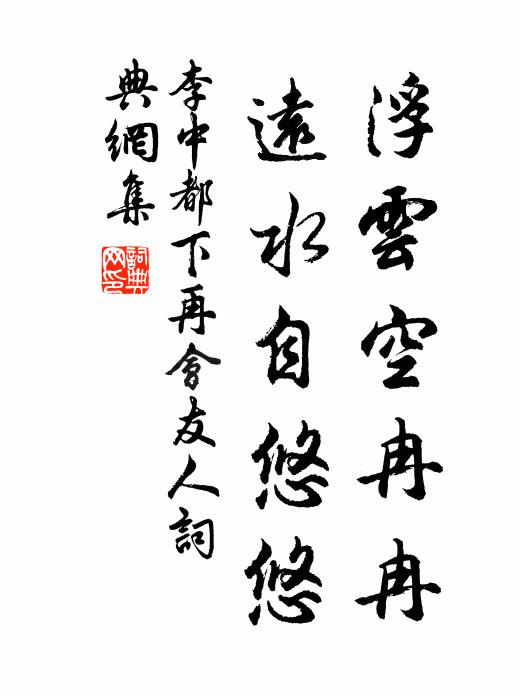 浮雲空冉冉
遠水自悠悠
李中都下再會友人詞
典網集
詞典網印